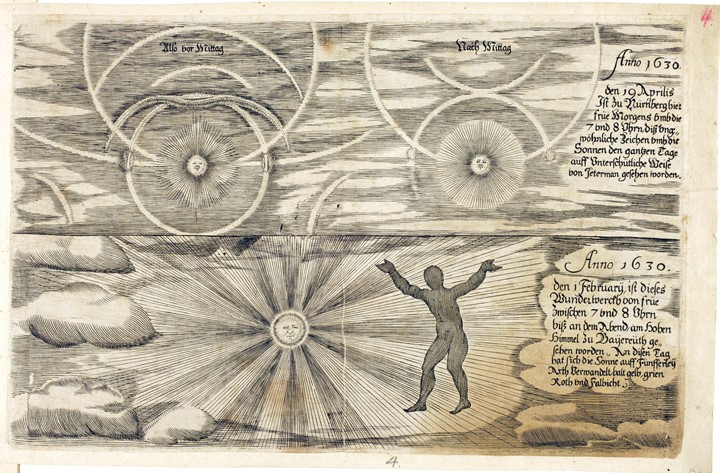 Also vor Mittag
Nach Mittag
Anno 1630.
den 19 Aprilis
Ist zu Nürnberg hier
frue Morgens vmb die
7 vnd 8 Vhrn diß vng„
wöhnliche Zeichen vmb die
Sonnen den gantzen Tage
auff Vnterschitliche Weise
von Jeterman gesehen worden.
Anno 1630.
den 1 February, ist dieses
Wunderwerckh von frue
zwischen 7 vnd 8 Vhrn
biß an dem Abend am hohen
Himmel zu Bayereüth ge„
sehen worden. An disen Tag
hat sich die Sonne auff Fünfferley
Arth Verwandelt, balt gelb, grien
Roth vnd falbicht.
4.